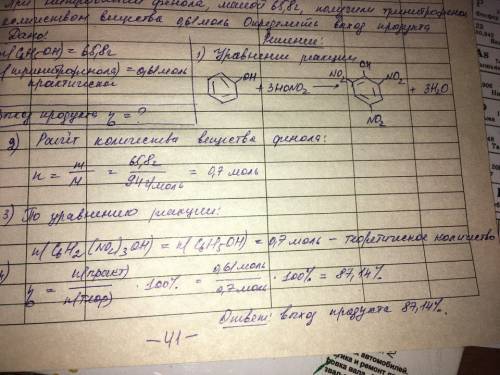 При нитровании фенола, массой 65,8г, получили тринитрофенол
количеством вещества 0,61 моль. Определить выход продукта
Дано:
Решение:
m(C₆H₅OH) = 65,8г
1) Уравнение реакции
(тринитрофенола) = 0,61 моль
практической
OH
+ 3HONO₂ →
OH
NO₂
NO₂
NO₂
+ 3H₂O
Выход продукта η = ?
2) Расчёт количества вещества фенола:
n = m/M = 65,8г/94г/моль = 0,7 моль
3) По уравнению реакции:
n(C₆H₂(NO₂)₃OH) = n(C₆H₅OH) = 0,7 моль – теоретическое количество
η = n(практ)/n(теор) · 100% = 0,61 моль/0,7 моль · 100% = 87,14%
Ответ: выход продукта 87,14%.
–41–
автомобилей,